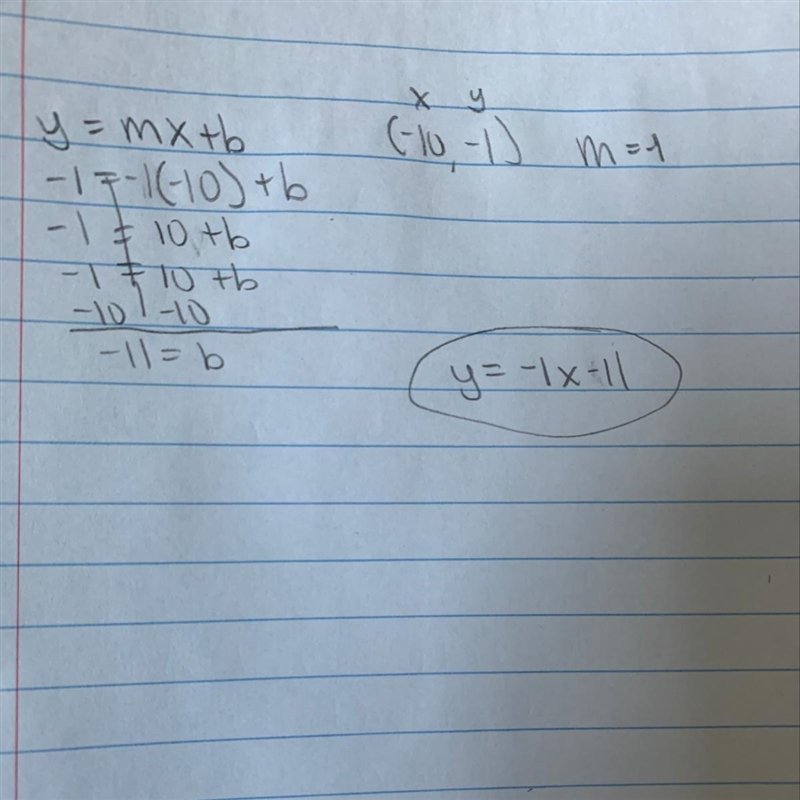 x y
y = mx+b (-10, -1) m=-1
-1 = -1(-10) + b
-1 = 10 + b
-1 = 10 + b
-10 -10
-11 = b
y = -1x-11